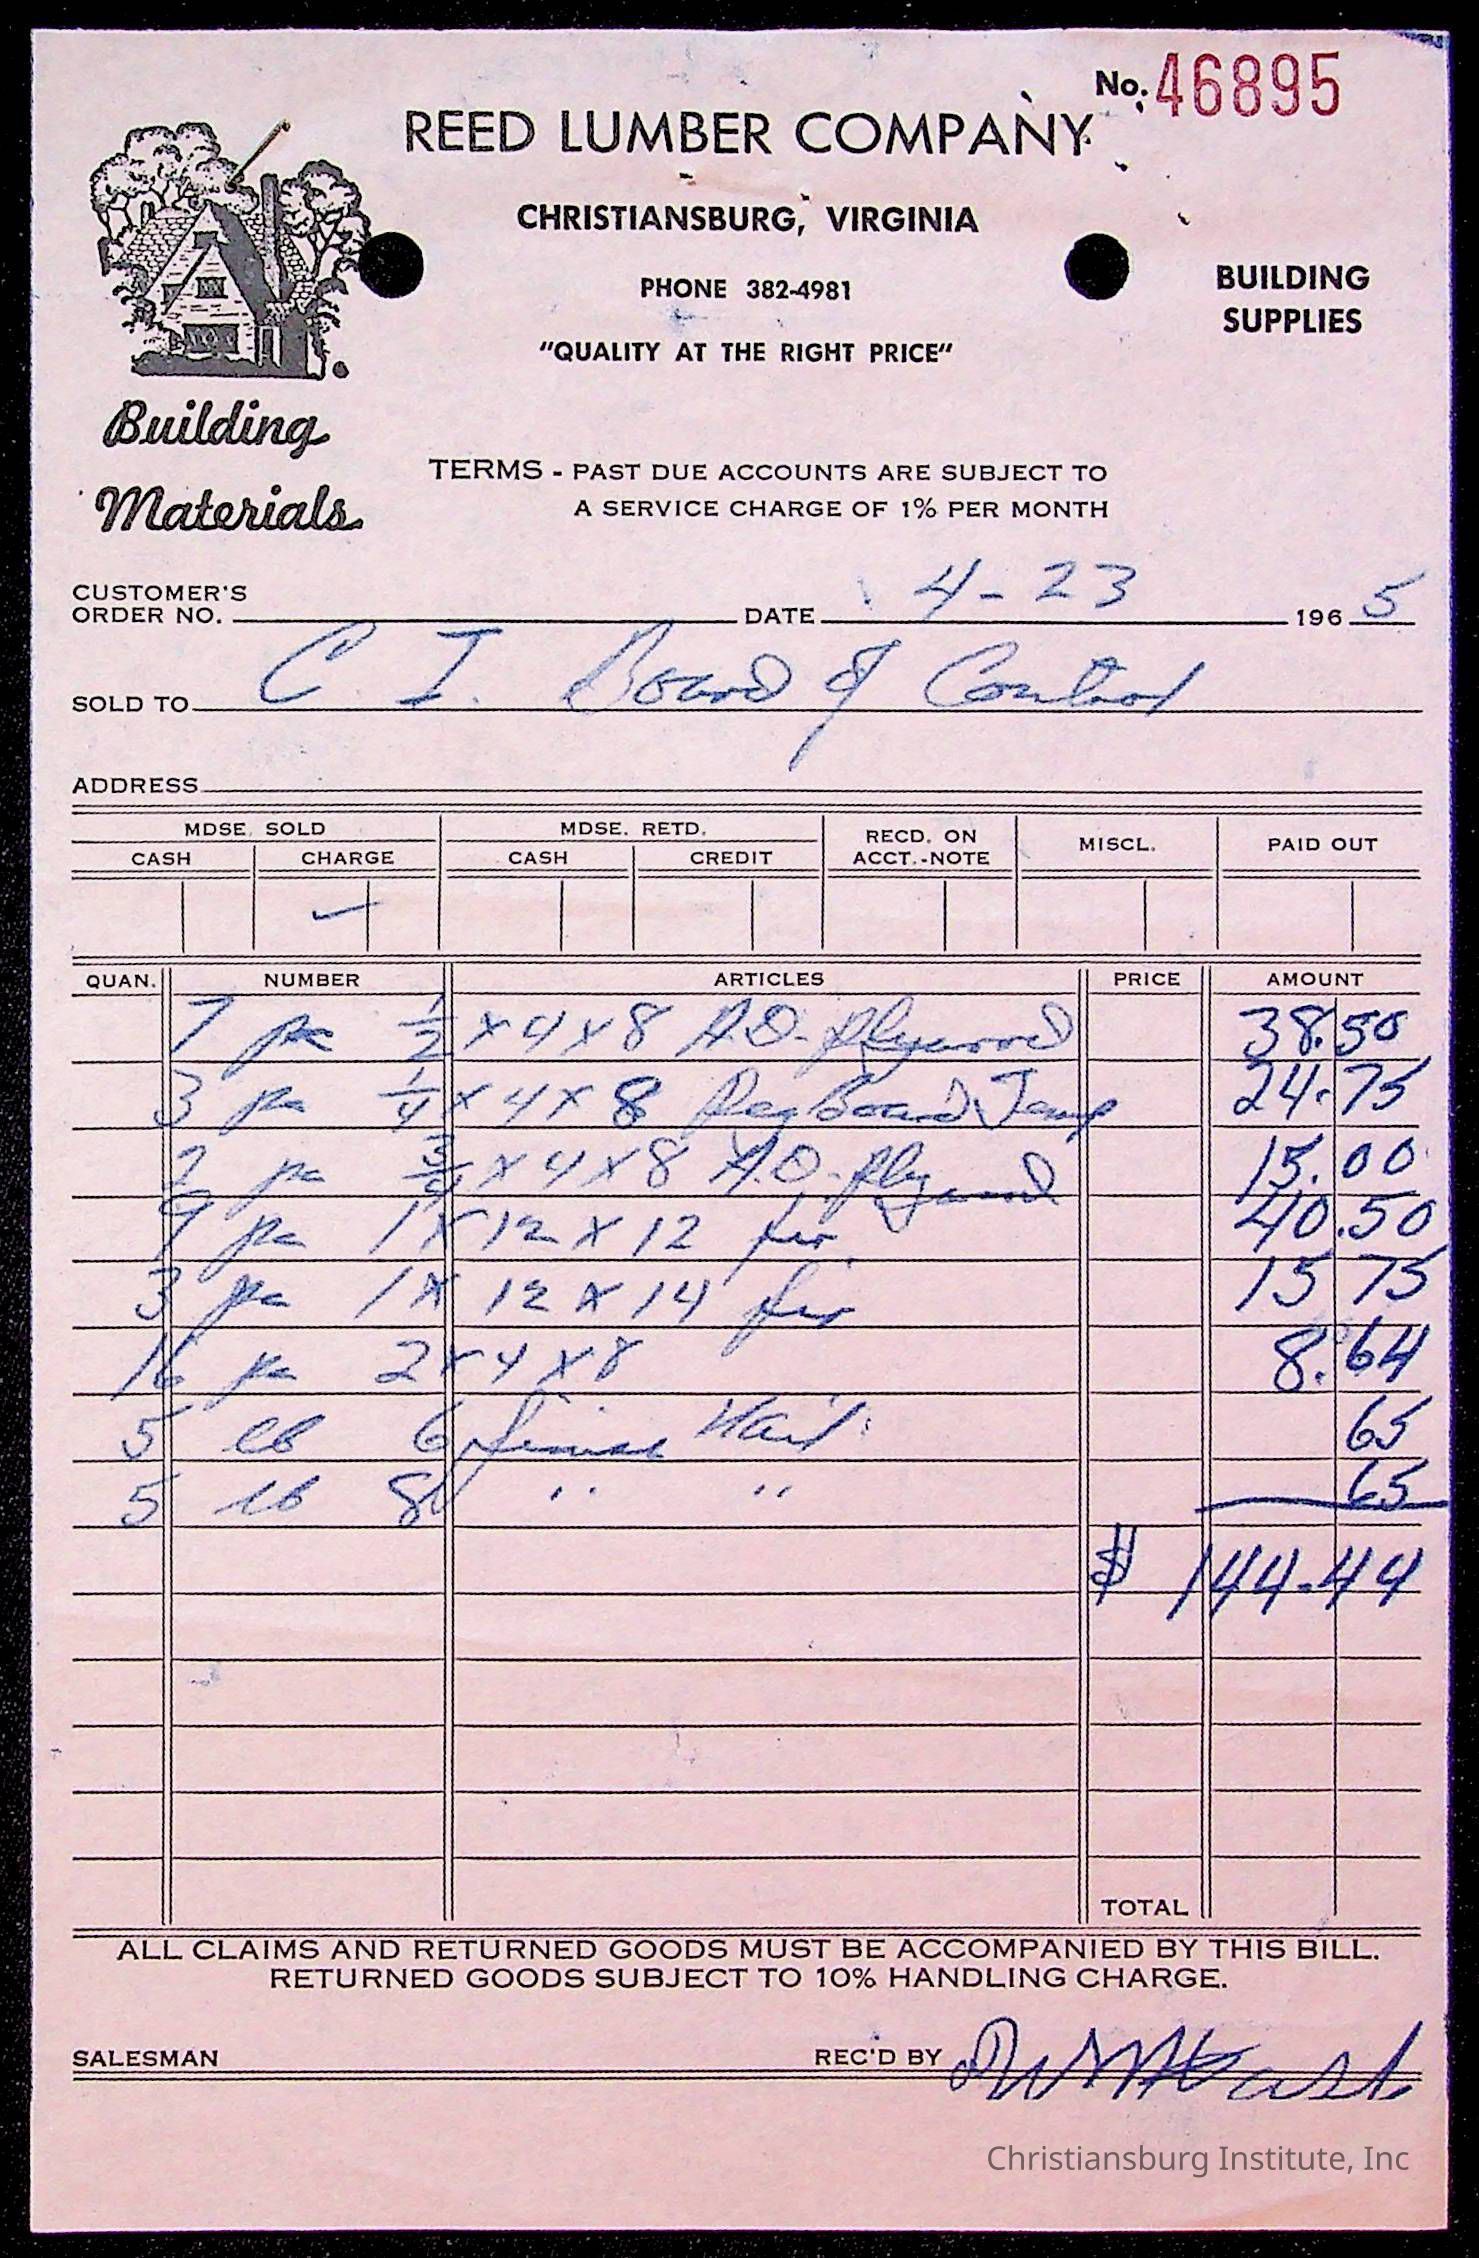 No. 46895
REED LUMBER COMPANY
CHRISTIANSBURG, VIRGINIA
PHONE 382-4981
BUILDING
SUPPLIES
"QUALITY AT THE RIGHT PRICE"
Building
Materials
TERMS - PAST DUE ACCOUNTS ARE SUBJECT TO
A SERVICE CHARGE OF 1% PER MONTH
CUSTOMER'S
ORDER NO. DATE 4-23 196 5
SOLD TO C I. Board of Control
ADDRESS
MDSE. SOLD MDSE. RETD. RECD. ON ACCT.-NOTE MISCL. PAID OUT
CASH CHARGE CASH CREDIT
✓
QUAN. NUMBER ARTICLES PRICE AMOUNT
7 pc 1/2 x 4 x 8 A.D. Plywood 38.50
3 pc 1/4 x 4 x 8 Peg Board Temp 24.75
2 pc 3/4 x 4 x 8 A.D. Plywood 15.00
9 pc 1 x 12 x 12 fir 40.50
3 pc 1 x 12 x 14 fir 15 75
16 pc 2 x 4 x 8 8.64
5 lb 6 finish Nail 65
5 lb 8 " " 65
$ 144.44
TOTAL
ALL CLAIMS AND RETURNED GOODS MUST BE ACCOMPANIED BY THIS BILL.
RETURNED GOODS SUBJECT TO 10% HANDLING CHARGE.
SALESMAN REC'D BY
Christiansburg Institute, Inc